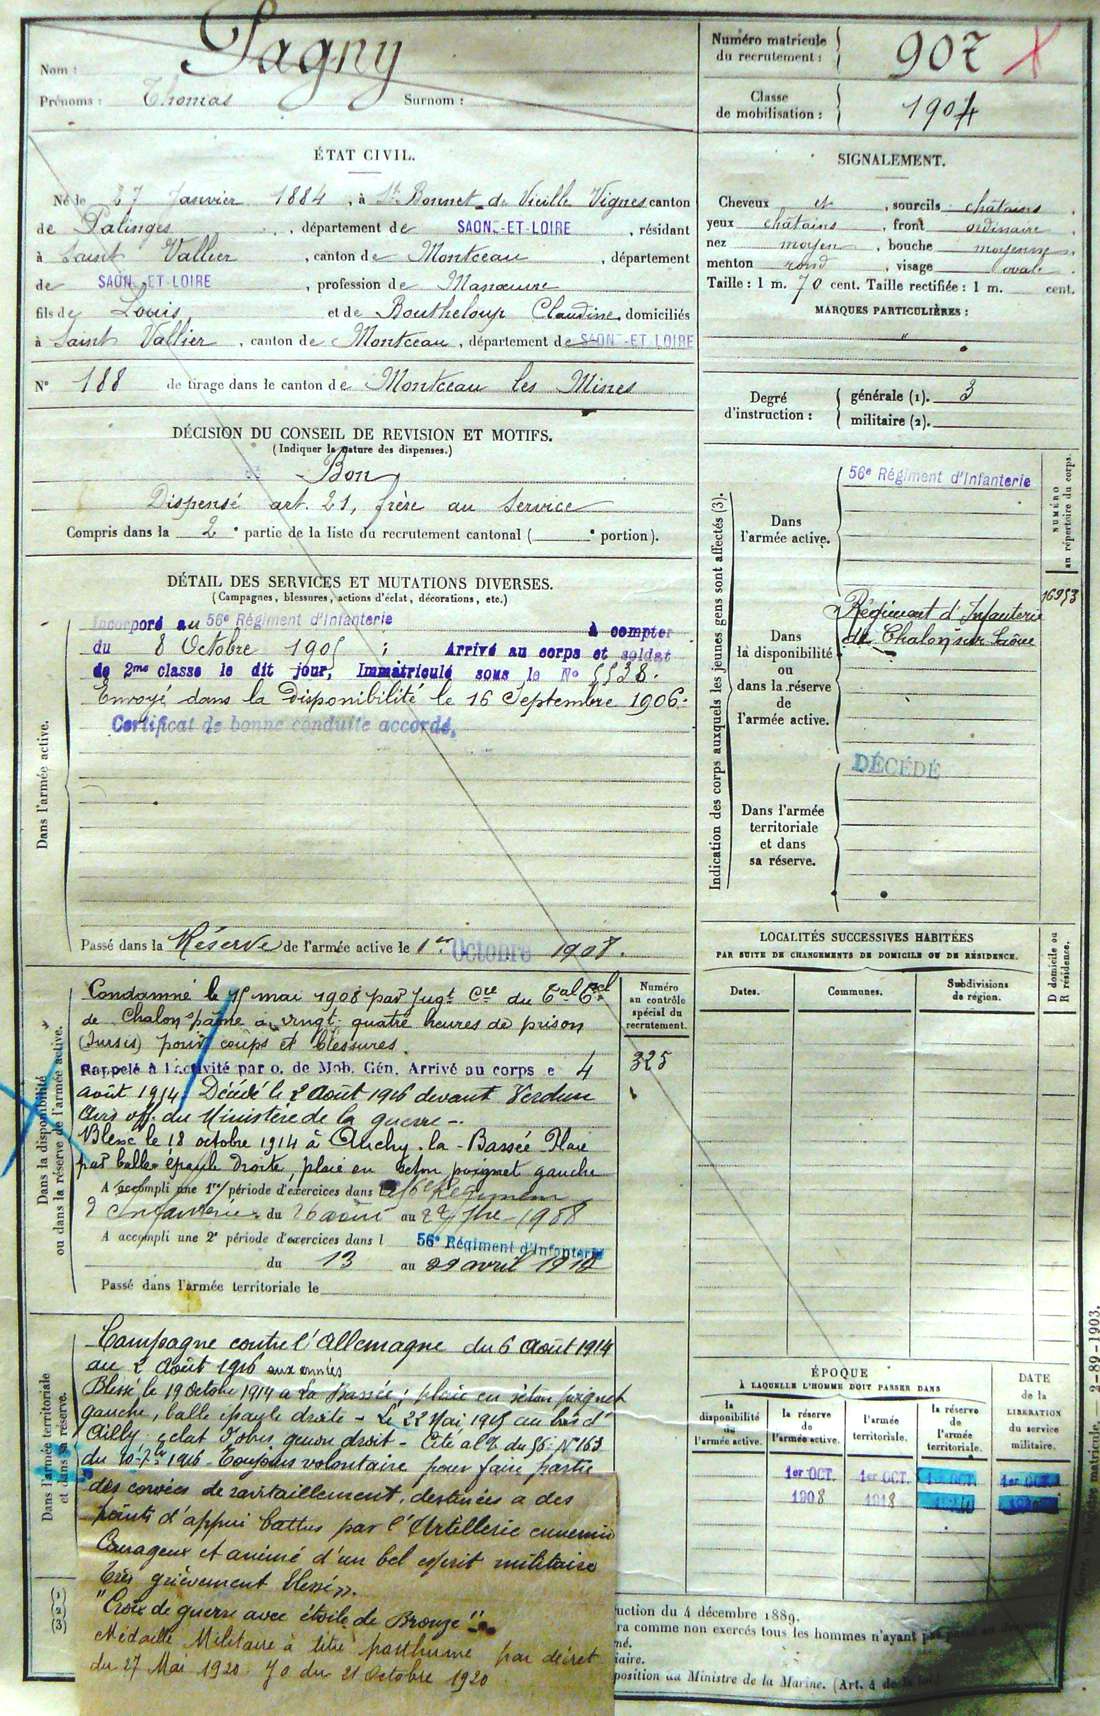 Nom : Pagny
Prénoms : Thomas Surnom :
Numéro matricule du recrutement : 907 X
Classe de mobilisation : 1904
ÉTAT CIVIL.
Né le 27 Janvier 1884, à St Bonnet de Vieille Vignes canton
de Palinges, département de SAONE-ET-LOIRE, résidant
à Saint Vallier, canton de Montceau, département
de SAONE-ET-LOIRE, profession de Manœuvre
fils de Louis et de Boutheloup Claudine domiciliés
à Saint Vallier, canton de Montceau, département de SAONE-ET-LOIRE
N° 188 de tirage dans le canton de Montceau les Mines
SIGNALEMENT.
Cheveux et, sourcils châtains
yeux châtains, front ordinaire
nez moyen, bouche moyenne
menton rond, visage ovale
Taille : 1 m. 70 cent. Taille rectifiée : 1 m. cent.
MARQUES PARTICULIÈRES :
"
Degré d'instruction : générale (1). 3
militaire (2).
DÉCISION DU CONSEIL DE REVISION ET MOTIFS.
(Indiquer la nature des dispenses.)
Bon
Dispensé art. 21, frère au Service
Compris dans la 2e partie de la liste du recrutement cantonal ( e portion).
DÉTAIL DES SERVICES ET MUTATIONS DIVERSES.
(Campagnes, blessures, actions d'éclat, décorations, etc.)
Dans l'armée active.
Incorporé au 56e Régiment d'Infanterie à compter
du 8 Octobre 1905 ; Arrivé au corps et soldat
de 2me classe le dit jour, Immatriculé sous le N° 5538.
Envoyé dans la Disponibilité le 16 Septembre 1906.
Certificat de bonne conduite accordé.
Passé dans la Réserve de l'armée active le 1er Octobre 1908.
Indication des corps auxquels les jeunes gens sont affectés (3).
NUMÉRO au répertoire du corps.
Dans l'armée active.
56e Régiment d'Infanterie
Dans la disponibilité ou dans la réserve de l'armée active.
Régiment d'Infanterie
de Chalon sur Saône
16953
Dans l'armée territoriale et dans sa réserve.
DÉCÉDÉ
LOCALITÉS SUCCESSIVES HABITÉES
PAR SUITE DE CHANGEMENTS DE DOMICILE OU DE RÉSIDENCE.
D domicile ou R résidence.
Dates. Communes. Subdivisions de région.
Dans la disponibilité ou dans la réserve de l'armée active.
Numéro au contrôle spécial du recrutement.
325
Condamné le 15 mai 1908 par Jugt Cre du Tal Cel
de Chalon s/ Saône à vingt quatre heures de prison
(Sursis) pour coups et blessures.
Rappelé à l'activité par o. de Mob. Gén. Arrivé au corps le 4
août 1914. Décédé le 2 Août 1916 devant Verdun
Avis off. du Ministère de la guerre -
Blessé le 18 octobre 1914 à Auchy-la-Bassée Plaie
par balle épaule droite plaie en séton poignet gauche
A accompli une 1re période d'exercices dans le 56e Régiment
d'Infanterie du 26 août au 22 7bre 1908
A accompli une 2e période d'exercices dans l 56e Régiment d'Infanterie
du 13 au 29 avril 1910
Passé dans l'armée territoriale le
Dans l'armée territoriale et dans sa réserve.
Campagne contre l'Allemagne du 6 Août 1914
au 2 Août 1916 aux armées
Blessé le 19 Octobre 1914 à La Bassée ; plaie en séton poignet
gauche, balle épaule droite - Le 22 Mai 1915 au bois d'
Ailly éclat d'obus genou droit - Cité à l'O. du 56e N° 163
du 10 1916 - Toujours volontaire pour faire partie
des corvées de ravitaillement, destinées à des
points d'appui battus par l'Artillerie ennemie
Courageux et animé d'un bel esprit militaire
Très grièvement blessé".
"Croix de guerre avec étoile de Bronze".
Médaille Militaire à titre posthume par décret
du 27 Mai 1920 J O du 21 Octobre 1920
ÉPOQUE
À LAQUELLE L'HOMME DOIT PASSER DANS
DATE de la LIBÉRATION du service militaire.
la disponibilité de l'armée active.
la réserve de l'armée active.
l'armée territoriale.
la réserve de l'armée territoriale.
1er OCT. 1er OCT. 1er OCT. 1er OCT.
1908 1918
(1)
(2)
(3)
uction du 4 décembre 1889.
ra comme non exercés tous les hommes n'ayant
mé.
iaire.
position du Ministre de la Marine. (Art. 4 de la loi
matricule. — 2-89-1903.